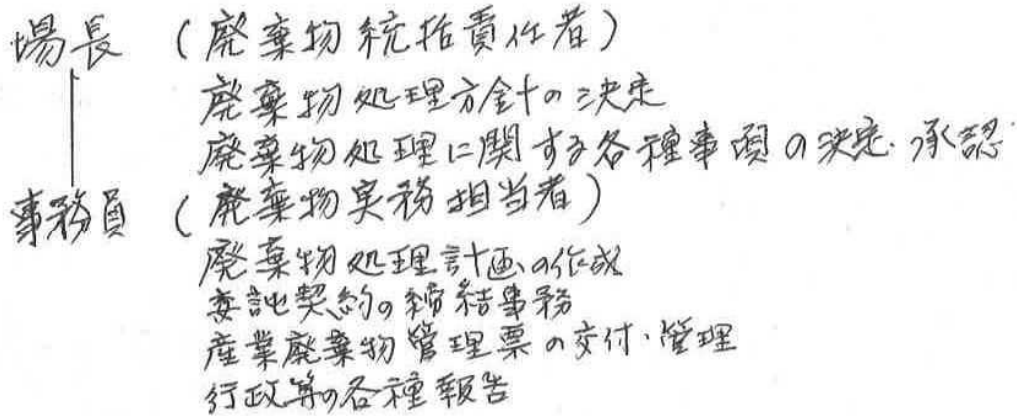 場長 (廃棄物統括責任者)
廃棄物処理方針の決定
廃棄物処理に関する各種事項の決定・承認
事務員 (廃棄物実務担当者)
廃棄物処理計画の作成
委託契約の締結事務
産業廃棄物管理票の交付・管理
行政等の各種報告